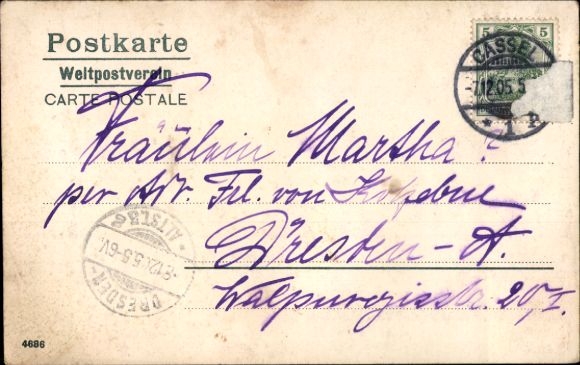 Postkarte
Weltpostverein
CARTE POSTALE
5 5
CASSEL
-7.12.05.5
* 1
Fräulein Martha ?
per Adr. Frl. von Kotzebue
Dresden-A.
Walpurgisstr. 20, I.
DRESDEN-
-8.12.05.5-6V.
* ALTST.
4686